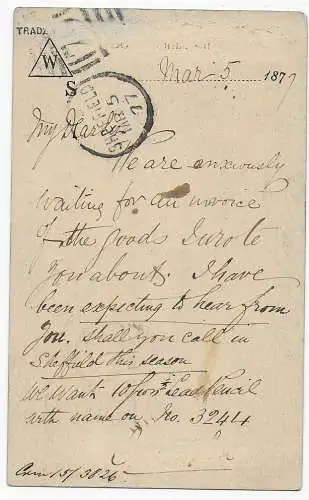 TRADE
W
S
Mar 5 1877
My Dear
We are anxiously
waiting for an invoice
of the goods I wrote
you about. I have
been expecting to hear from
you. shall you call in
Sheffield this season
We want 10 Gross Lead Pencil
with name on No. 3244